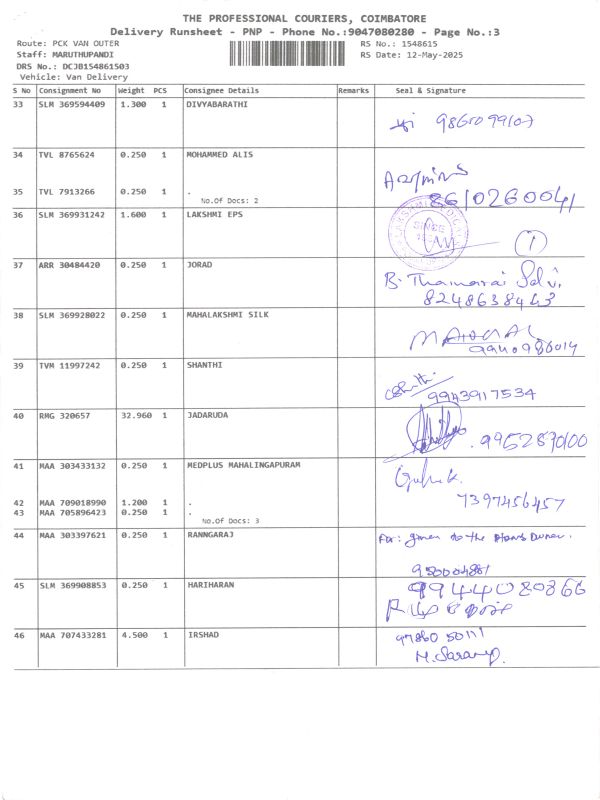 THE PROFESSIONAL COURIERS, COIMBATORE
Delivery Runsheet - PNP - Phone No.:9047080280 - Page No.:3
Route: PCK VAN OUTER
RS No.: 1548615
Staff: MARUTHUPANDI
RS Date: 12-May-2025
DRS No.: DCJB154861503
Vehicle: Van Delivery
S No Consignment No Weight PCS Consignee Details Remarks Seal & Signature
33 SLM 369594409 1.300 1 DIVYABARATHI
34 TVL 8765624 0.250 1 MOHAMMED ALIS
35 TVL 7913266 0.250 1 .
No.Of Docs: 2
8610260041
36 SLM 369931242 1.600 1 LAKSHMI EPS
1
37 ARR 30484420 0.250 1 JORAD
B. Thamarai Selvi.
8248638463
38 SLM 369928022 0.250 1 MAHALAKSHMI SILK
9940986014
39 TVM 11997242 0.250 1 SHANTHI
9943917534
40 RMG 320657 32.960 1 JADARUDA
9952870100
41 MAA 303433132 0.250 1 MEDPLUS MAHALINGAPURAM
7397456457
42 MAA 709018990 1.200 1 .
43 MAA 705896423 0.250 1 .
No.Of Docs: 3
44 MAA 303397621 0.250 1 RANNGARAJ
For: given to the Owner.
45 SLM 369908853 0.250 1 HARIHARAN
9944080866
46 MAA 707433281 4.500 1 IRSHAD
97860 50111